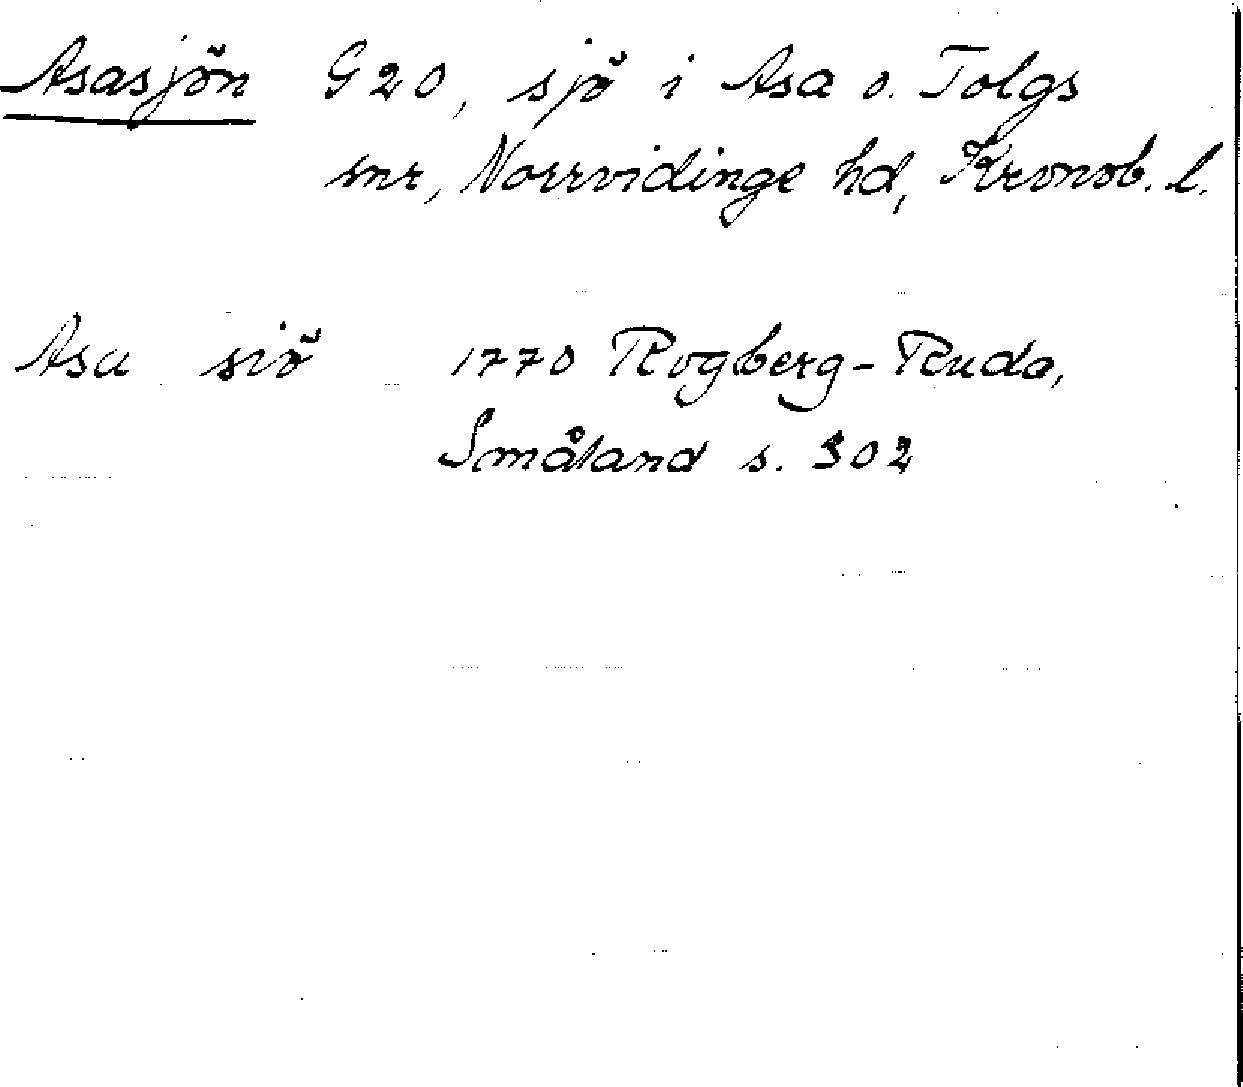 Asasjön G 20, sjö i Asa o. Tolgs
snr, Norrvidinge hd, Kronob. l.
Asa siö 1770 Rogberg-Ruda,
Småland s. 302